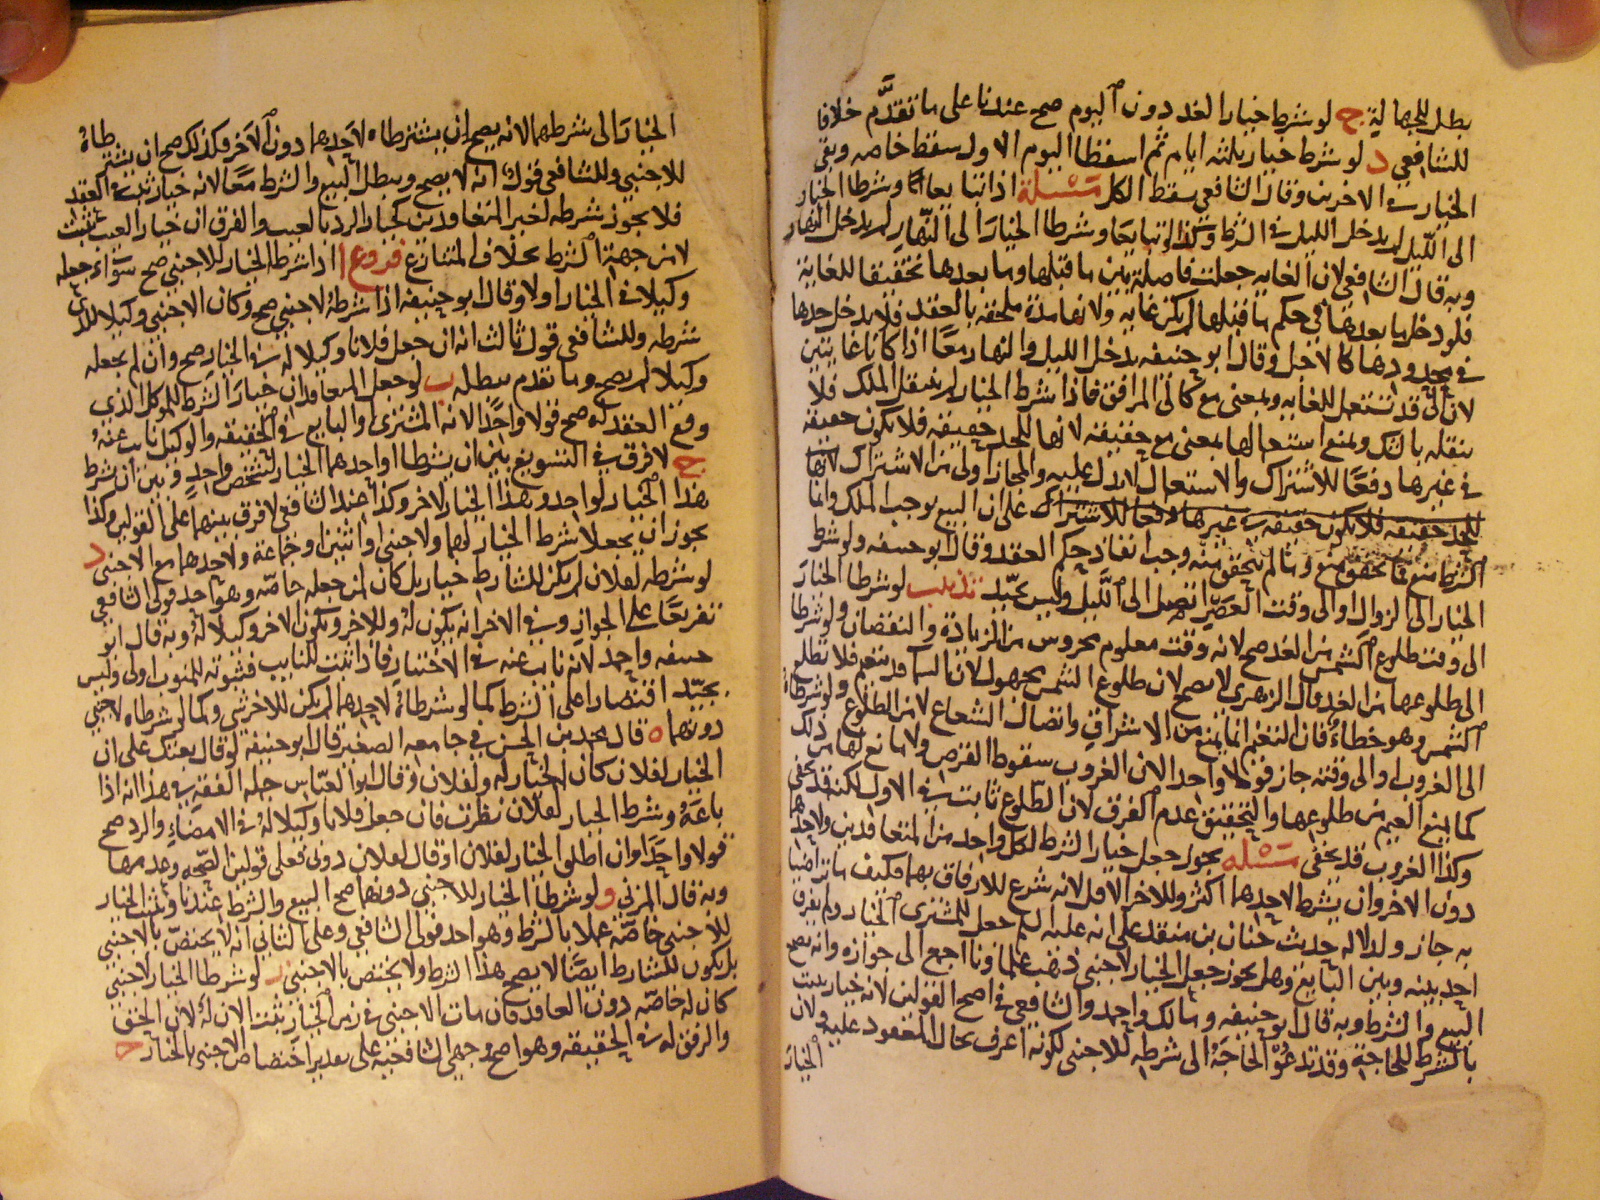 بطل للجهالة ج لو شرط خيار الغد دون اليوم صح عندنا على ما تقدم خلافا
للشافعي د لو شرط خيار ثلثه ايام ثم اسقطا اليوم الاول سقط خاصه وبقي
الخيار في الاخرين وقال الشافعي سقط الكل مسئلة اذا تبايعا وشرطا الخيار
الى الليل لم يدخل الليل في الشرط وكذا لو تبايعا وشرطا الخيار الى النهار لم يدخل النهار
وبه قال الشافعي لان الغايه جعلت فاصلة بين ما قبلها وما بعدها تحقيقا للغاية
فلو دخل ما بعدها في حكم ما قبلها لم يكن غايه ولانها مدة ملحقه بالعقد فلا يدخل حدها
في محدودها كالاجل وقال ابو حنيفه يدخل الليل والنهار معا اذا كانا غايتين
لان الى قد تستعمل للغايه وبمعنى مع كالى المرافق فاذا شرط الخيار لم ينتقل الملك فلا
ننقله بالشك ونمنع استعمالها بمعنى مع حقيقه لانها للحد حقيقه فلا يكون حقيقه
في غيرها دفعا للاشتراك والاستعمال لا يدل عليه والمجاز اولى من الاشتراك لانها
للحد حقيقه فلا يكون حقيقه في غيرها دفعا للاشتراك على ان البيع يوجب الملك وانما
الشرط منع فما تحقق منع وما لم يتحقق منه وجب انفاذ حكم العقد وقال ابو حنيفه ولو شرط
الخيار الى الزوال او الى وقت العصر اتصل الى الليل وليس بجيد تذنيب لو شرطا الخيار
الى وقت طلوع الشمس من الغد صح لانه وقت معلوم محروس من الزيادة والنقصان ولو شرطا
الى طلوعها من الغد قال الزهري لا يصح لان طلوع الشمس مجهول لان السما قد تتغيم فلا تطلع
الشمس وهو خطاء فان التغيم انما يمنع من الاشراق واتصال الشعاع لا من الطلوع ولو شرطاه
الى الغروب او الى وقته جاز قولا واحدا لان الغروب سقوط القرص ولا مانع لها من ذلك
كما يمنع الغيم من طلوعها والتحقيق عدم الفرق لان الطلوع ثابت في الاول لكنه قد يخفى
وكذا الغروب قد يخفى مسئله يجوز جعل خيار الشرط لكل واحد من المتعاقدين ولاحدهما
دون الاخر وان يشرط لاحدهما اكثر وللاخر الاقل لانه شرع للارفاق بهما فكيف ما تراضيا
به جاز ولدلاله حديث حنان بن منقد على انه عليه السلم جعل للمشتري الخيار ولم يفرق
احد بينه وبين البايع وهل يجوز جعل الخيار لاجنبي ذهب علماونا اجمع الى جوازه وانه يصح
البيع والشرط وبه قال ابو حنيفه ومالك واحمد والشافعي في اصح القولين لانه خيار يثبت
بالشرط للحاجة وقد تدعوا الحاجة الى شرطه للاجنبي لكونه اعرف بحال المعقود عليه ولان
الخيار
الخيار الى شرطهما لانه يصح ان يشترطاه لاحدهما دون الاخر فكذلك صح ان يشترطاه
للاجنبي وللشافعي قول انه لا يصح ويبطل البيع والشرط معا لانه خيار ثبت في العقد
فلا يجوز شرطه لغير المتعاقدين كخيار الرد بالعيب والفرق ان خيار العيب يثبت
لا من جهة الشرط بخلاف المتنازع فروع ا اذا شرطا الخيار للاجنبي صح سواء جعله
وكيلا في الخيار او لا وقال ابو حنيفه اذا شرطه لاجنبي صح وكان الاجنبي وكيلا للذي
شرطه وللشافعي قول ثالث انه ان جعل فلانا وكيلا له في الخيار صح وان لم يجعله
وكيلا لم يصح وما تقدم يبطله ب لو جعل المتعاقدان خيار الشرط للموكل الذي
وقع العقد له صح قولا واحدا لانه المشتري او البايع في الحقيقه والوكيل نايب عنه
ج لا فرق في التسويغ بين ان يشرطا او احدهما الخيار لشخص واحد وبين ان شرط
هذا الخيار لواحد وهذا الخيار لاخر وكذا عند الشافعي لا فرق بينهما على القولين وكذا
يجوز ان يجعلا شرط الخيار لهما ولاجنبي واثنين وجماعة ولاحدهما مع الاجنبي د
لو شرطه لفلان لم يكن للشارط خيار بل كان لمن جعله خاصه وهو احد قولي الشافعي
تفريعا على الجواز وفي الاخر انه يكون له وللاخر ويكون الاخر وكيلا له وبه قال ابو
حنيفه واحمد لانه نايب عنه في الاختيار فاذا ثبت للنايب فثبوته للمنوب اولى وليس
بجيد اقتصارا على الشرط كما لو شرطاه لاحدهما لم يكن للاخر شي وكما لو شرطاه لاجنبي
دونهما ه قال محمد بن الحسن في جامعه الصغير قال ابو حنيفة لو قال بعتك على ان
الخيار لفلان كان الخيار له ولفلان وقال ابو العباس جمله الفقه في هذا انه اذا
باعه وشرط الخيار لفلان نظرت فان جعل فلانا وكيلا له في الامضاء والرد صح
قولا واحدا وان اطلق الخيار لفلان او قال لفلان دوني فعلى قولين الصحه وعدمها
وبه قال المزني و لو شرطا الخيار للاجنبي دونهما صح البيع والشرط عندنا وثبت الخيار
للاجنبي خاصه عملا بالشرط وهو احد قولي الشافعي وعلى الثاني انه لا يختص بالاجنبي
بل يكون للشارط ايضا لا يصح هذا الشرط ولا يختص بالاجنبي ز لو شرطا الخيار لاجنبي
كان له خاصه دون العاقد فان مات الاجنبي في زمن الخيار ثبت الان له لان الحق
والرفق له في الحقيقه وهو اصح وجهي الشافعيه على تقدير اختصاص الاجنبي بالخيار ح